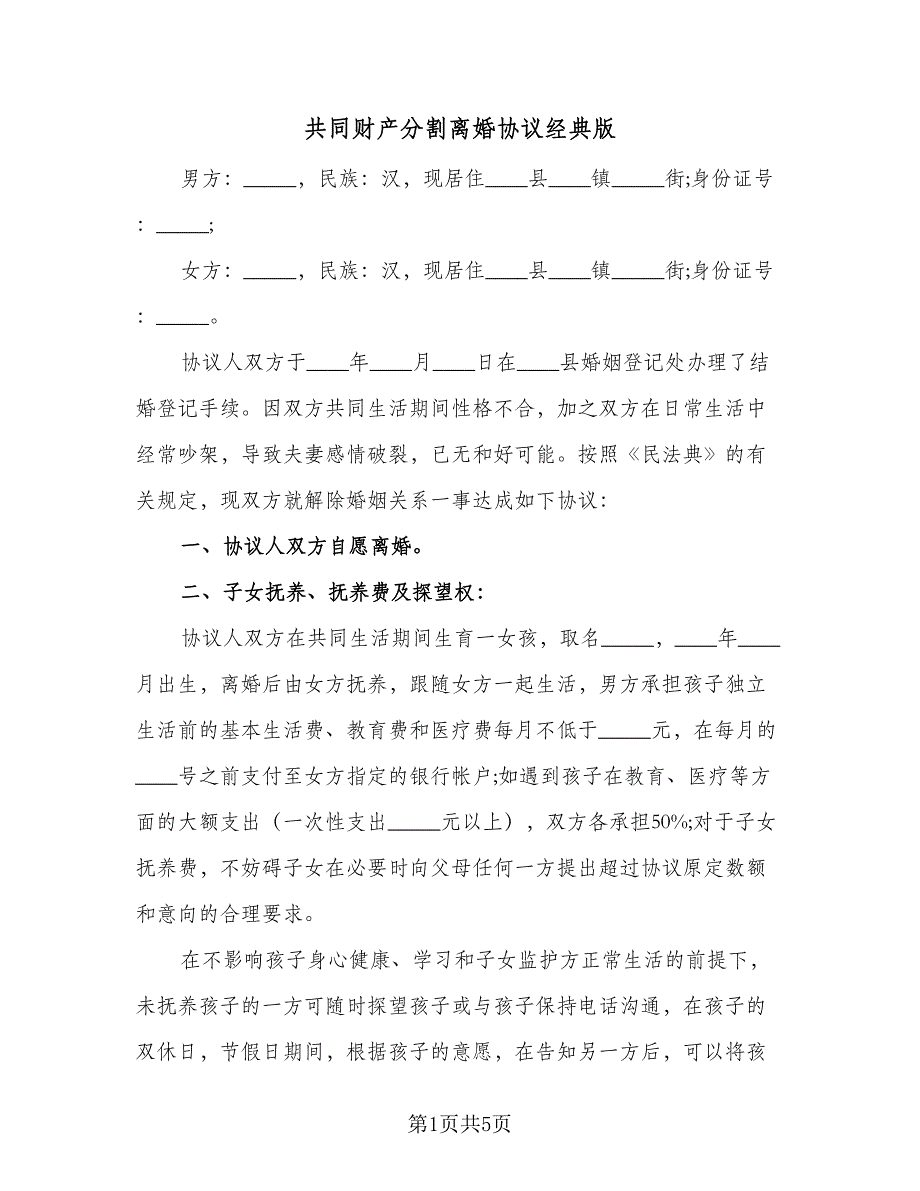 共同财产分割离婚协议经典版
男方：_____，民族：汉，现居住____县____镇_____街;身份证号
：_____;
女方：_____，民族：汉，现居住____县____镇_____街;身份证号
：_____。
协议人双方于____年____月____日在____县婚姻登记处办理了结
婚登记手续。因双方共同生活期间性格不合，加之双方在日常生活中
经常吵架，导致夫妻感情破裂，已无和好可能。按照《民法典》的有
关规定，现双方就解除婚姻关系一事达成如下协议：
一、协议人双方自愿离婚。
二、子女抚养、抚养费及探望权：
协议人双方在共同生活期间生育一女孩，取名_____，____年____
月出生，离婚后由女方抚养，跟随女方一起生活，男方承担孩子独立
生活前的基本生活费、教育费和医疗费每月不低于_____元，在每月的
____号之前支付至女方指定的银行帐户;如遇到孩子在教育、医疗等方
面的大额支出（一次性支出_____元以上），双方各承担50%;对于子女
抚养费，不妨碍子女在必要时向父母任何一方提出超过协议原定数额
和意向的合理要求。
在不影响孩子身心健康、学习和子女监护方正常生活的前提下，
未抚养孩子的一方可随时探望孩子或与孩子保持电话沟通，在孩子的
双休日，节假日期间，根据孩子的意愿，在告知另一方后，可以将孩
第1页共5页